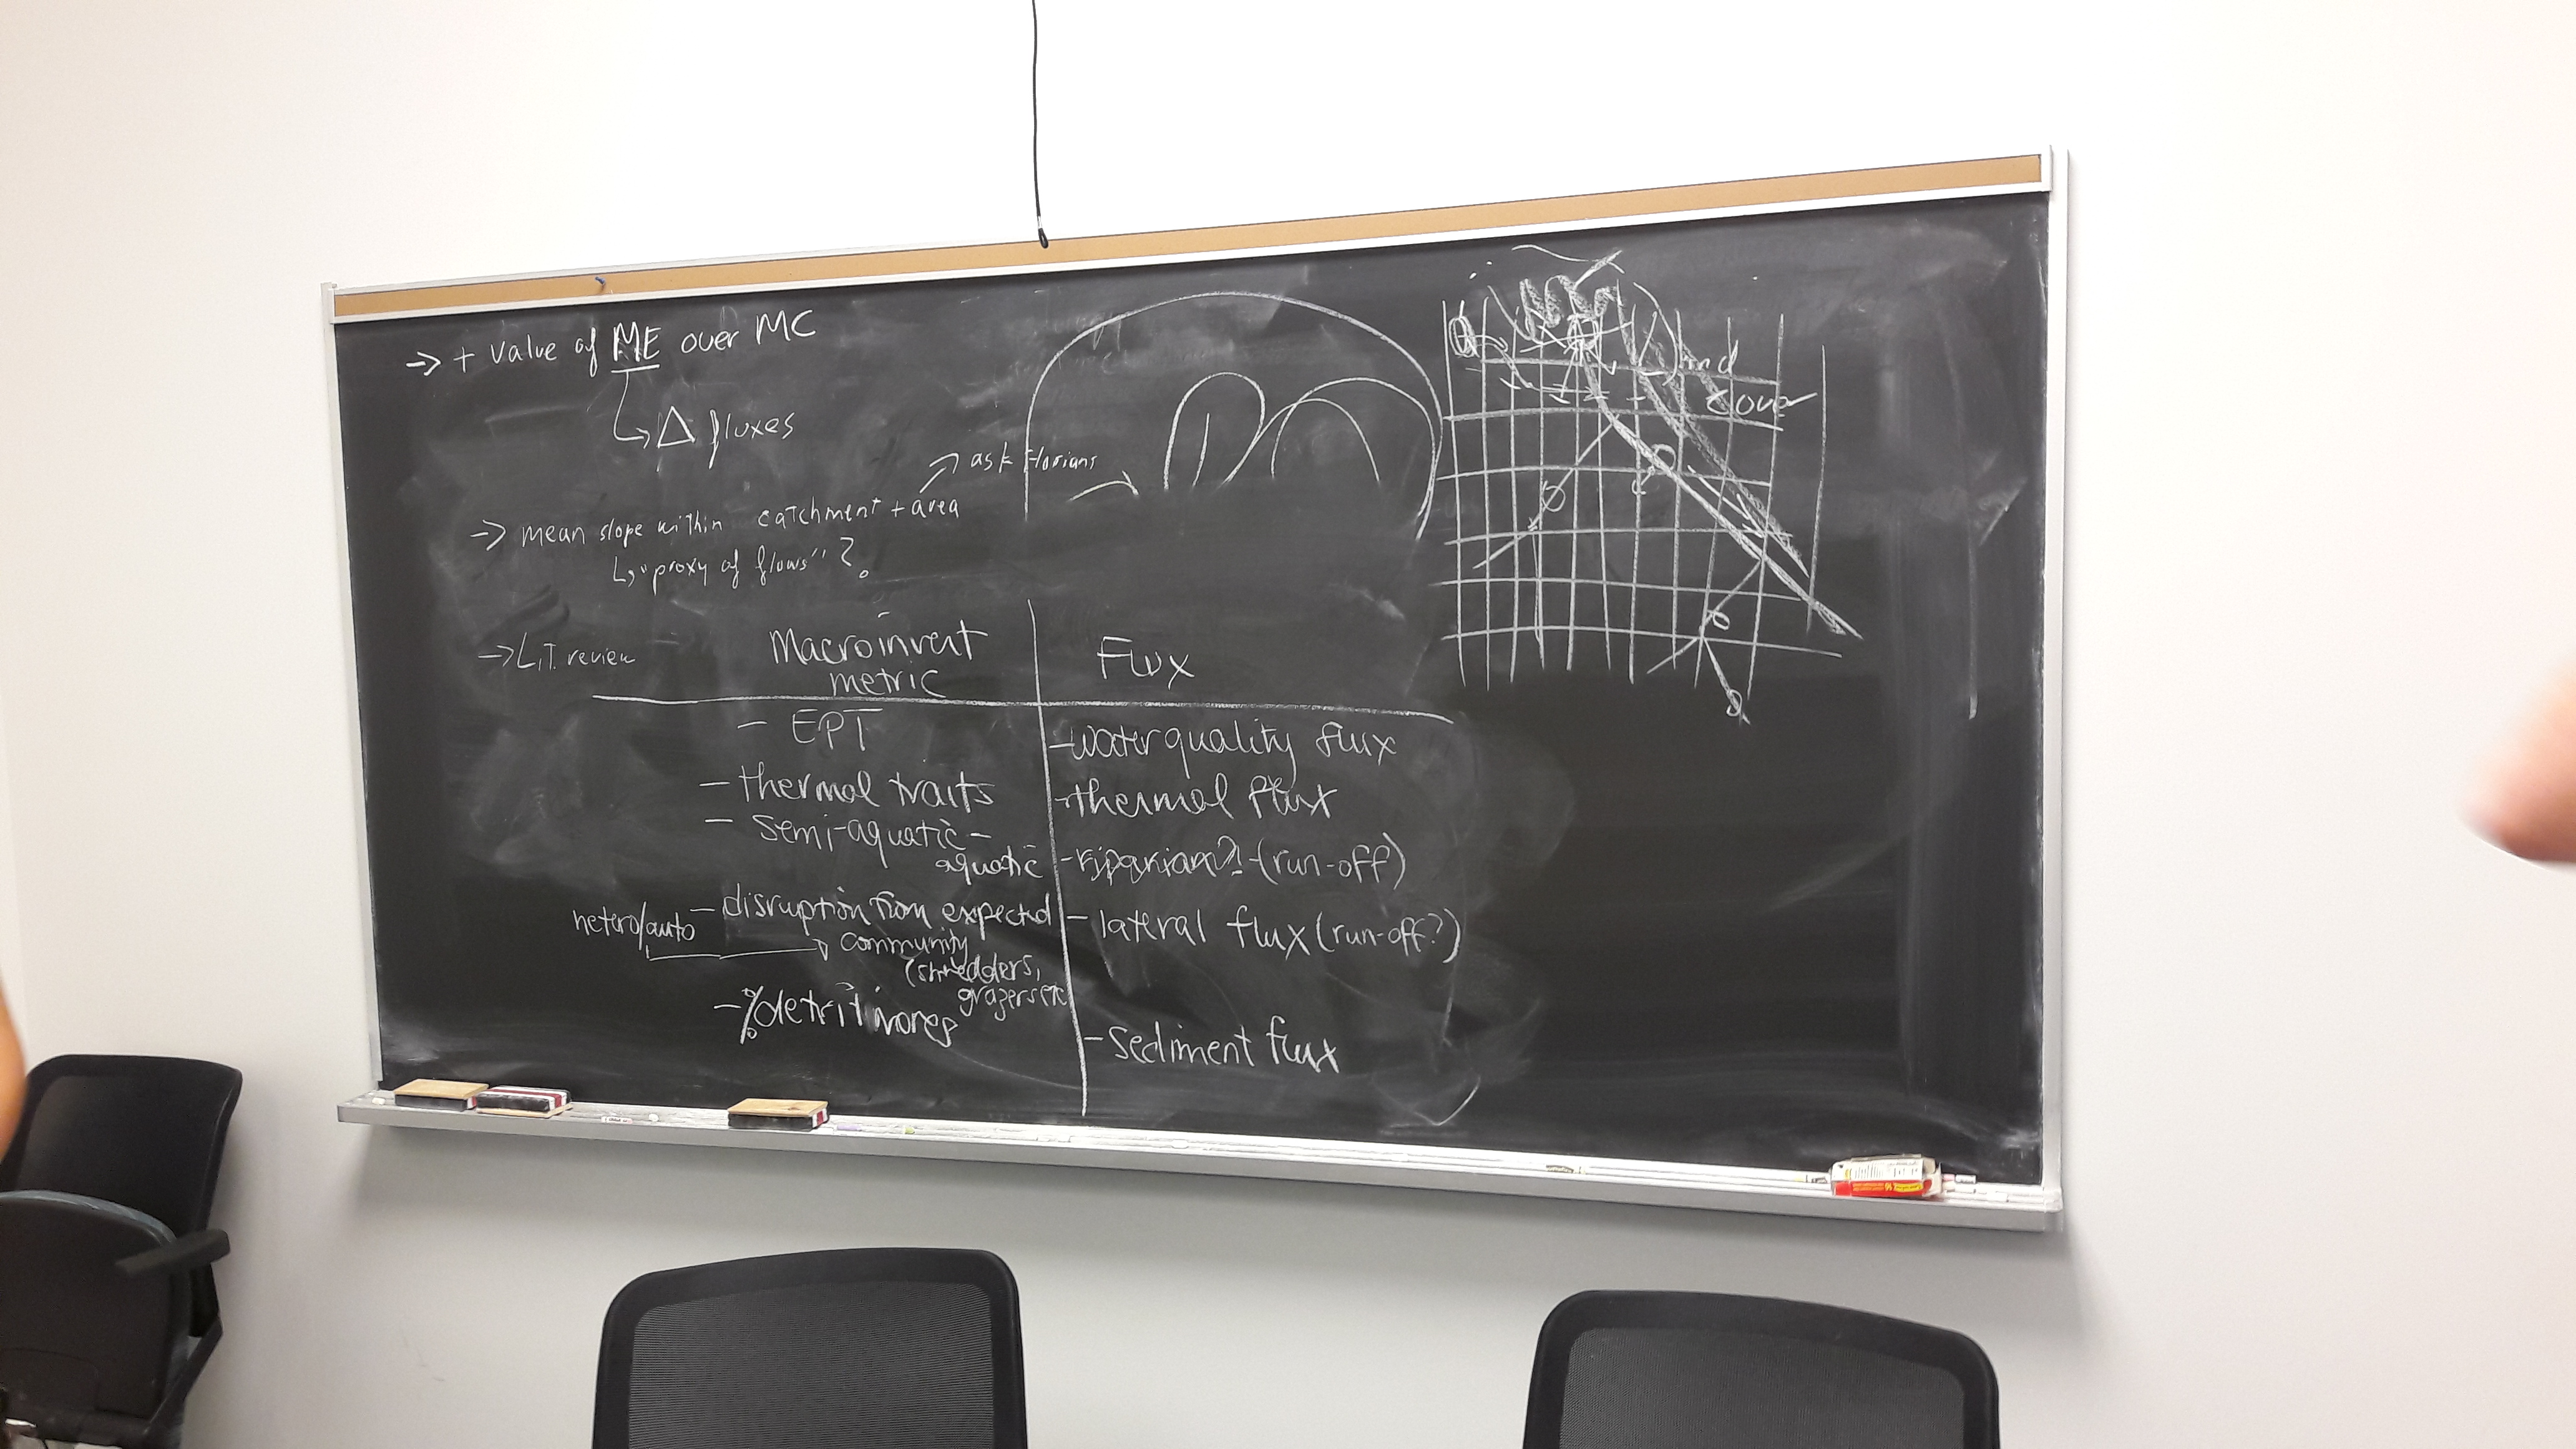 → + value of ME over MC
↳ Δ fluxes
↗ ask Florians
→ mean slope within catchment + area
↳ "proxy of flows" ?
→ LiT. review
Macroinvert
metric
Flux
- EPT
- water quality flux
- thermal traits
- thermal flux
- semi-aquatic -
aquatic
- riparian?! - (run-off)
- disruption from expected
hetero/auto → community
(shredders,
grazers etc
- lateral flux (run-off?)
- % detritivores
- sediment flux
Land
cover